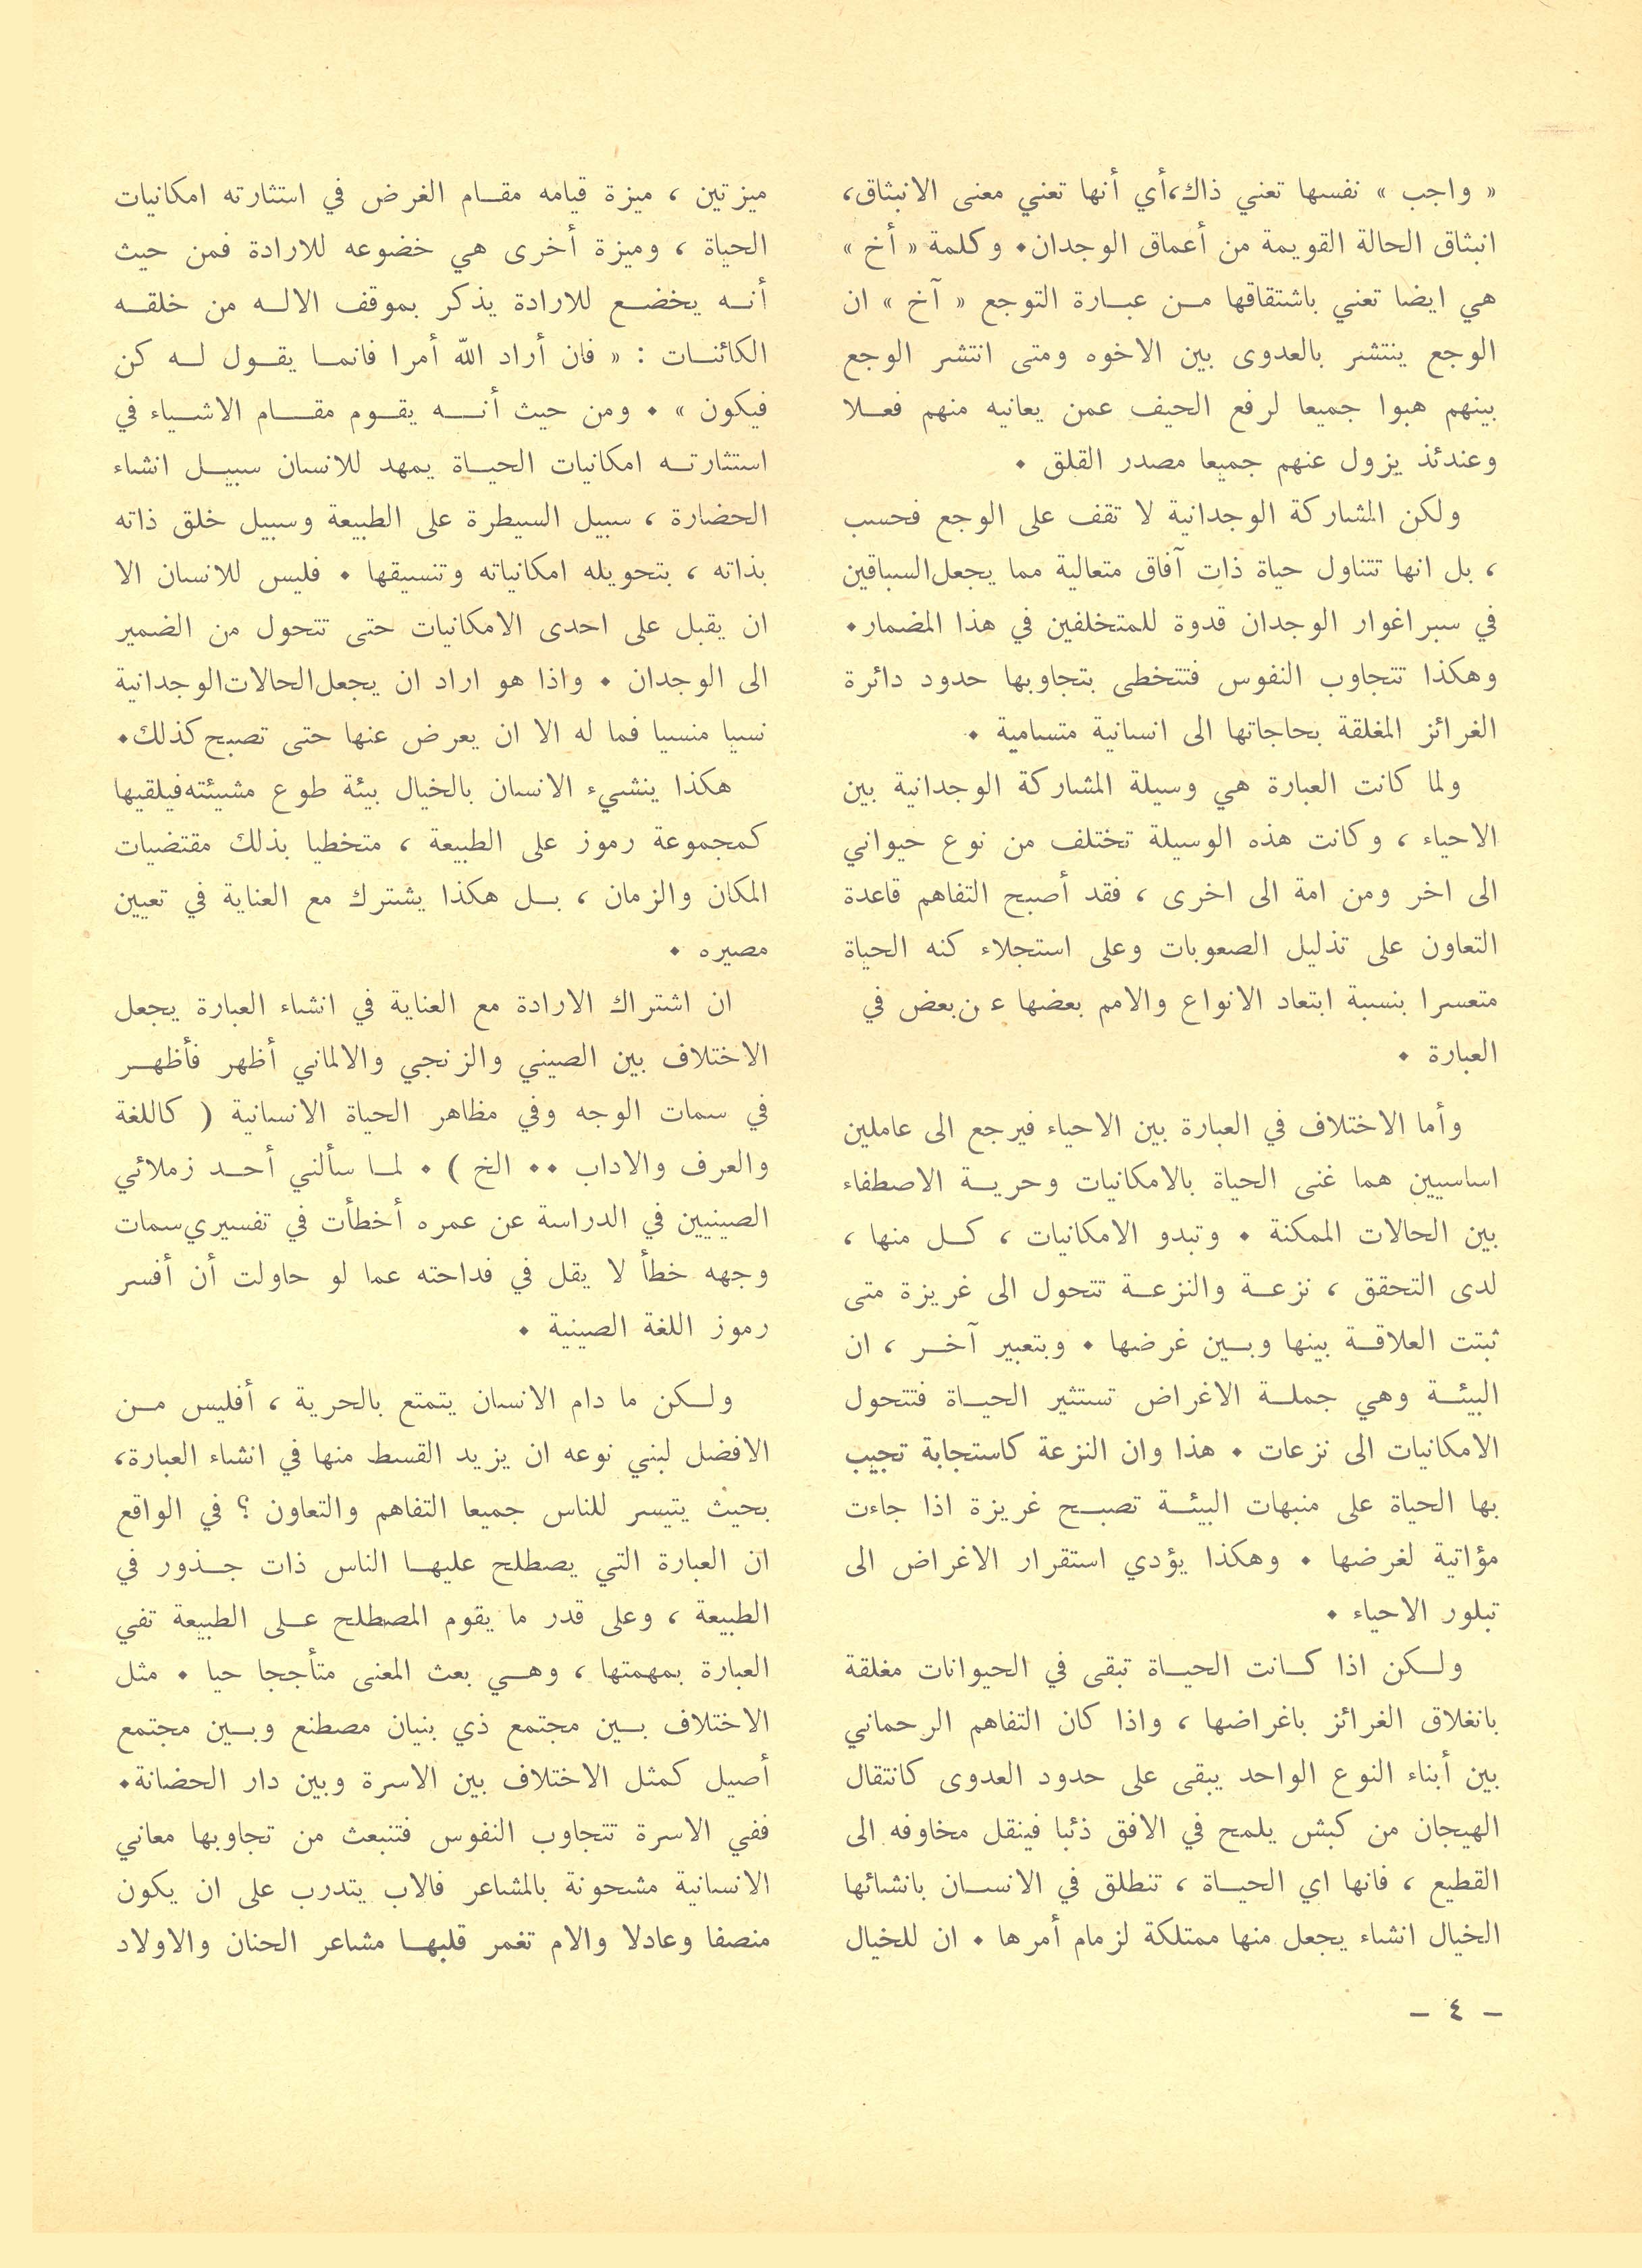 « واجب » نفسها تعني ذاك،أي أنها تعني معنى الانبثاق،
انبثاق الحالة القويمة من أعماق الوجدان٠ وكلمة « أخ »
هي ايضا تعني باشتقاقها من عبارة التوجع « آخ » ان
الوجع ينتشر بالعدوى بين الاخوه ومتى انتشر الوجع
بينهم هبوا جميعا لرفع الحيف عمن يعانيه منهم فعلا
وعندئذ يزول عنهم جميعا مصدر القلق ٠
ولكن المشاركة الوجدانية لا تقف على الوجع فحسب
، بل انها تتناول حياة ذات آفاق متعالية مما يجعل السباقين
في سبر اغوار الوجدان قدوة للمتخلفين في هذا المضمار٠
وهكذا تتجاوب النفوس فتتخطى بتجاوبها حدود دائرة
الغرائز المغلقة بحاجاتها الى انسانية متسامية ٠
ولما كانت العبارة هي وسيلة المشاركة الوجدانية بين
الاحياء ، وكانت هذه الوسيلة تختلف من نوع حيواني
الى اخر ومن امة الى اخرى ، فقد أصبح التفاهم قاعدة
التعاون على تذليل الصعوبات وعلى استجلاء كنه الحياة
متعسرا بنسبة ابتعاد الانواع والامم بعضها عن بعض في
العبارة ٠
وأما الاختلاف في العبارة بين الاحياء فيرجع الى عاملين
اساسيين هما غنى الحياة بالامكانيات وحرية الاصطفاء
بين الحالات الممكنة ٠ وتبدو الامكانيات ، كل منها ،
لدى التحقق ، نزعة والنزعة تتحول الى غريزة متى
ثبتت العلاقة بينها وبين غرضها ٠ وبتعبير آخر ، ان
البيئة وهي جملة الاغراض تستثير الحياة فتتحول
الامكانيات الى نزعات ٠ هذا وان النزعة كاستجابة تجيب
بها الحياة على منبهات البيئة تصبح غريزة اذا جاءت
مؤاتية لغرضها ٠ وهكذا يؤدي استقرار الاغراض الى
تبلور الاحياء ٠
ولكن اذا كانت الحياة تبقى في الحيوانات مغلقة
بانغلاق الغرائز باغراضها ، واذا كان التفاهم الرحماني
بين أبناء النوع الواحد يبقى على حدود العدوى كانتقال
الهيجان من كبش يلمح في الافق ذئبا فينقل مخاوفه الى
القطيع ، فانها اي الحياة ، تنطلق في الانسان بانشائها
الخيال انشاء يجعل منها ممتلكة لزمام أمرها ٠ ان للخيال
ميزتين ، ميزة قيامه مقام الغرض في استثارته امكانيات
الحياة ، وميزة أخرى هي خضوعه للارادة فمن حيث
أنه يخضع للارادة يذكر بموقف الاله من خلقه
الكائنات : « فان أراد الله أمرا فانما يقول له كن
فيكون » ٠ ومن حيث أنه يقوم مقام الاشياء في
استثارته امكانيات الحياة يمهد للانسان سبيل انشاء
الحضارة ، سبيل السيطرة على الطبيعة وسبيل خلق ذاته
بذاته ، بتحويله امكانياته وتنسيقها ٠ فليس للانسان الا
ان يقبل على احدى الامكانيات حتى تتحول من الضمير
الى الوجدان ٠ واذا هو اراد ان يجعل الحالات الوجدانية
نسيا منسيا فما له الا ان يعرض عنها حتى تصبح كذلك٠
هكذا ينشيء الانسان بالخيال بيئة طوع مشيئته فيلقيها
كمجموعة رموز على الطبيعة ، متخطيا بذلك مقتضيات
المكان والزمان ، بل هكذا يشترك مع العناية في تعيين
مصيره ٠
ان اشتراك الارادة مع العناية في انشاء العبارة يجعل
الاختلاف بين الصيني والزنجي والالماني أظهر فأظهر
في سمات الوجه وفي مظاهر الحياة الانسانية ( كاللغة
والعرف والاداب ٠٠ الخ ) ٠ لما سألني أحد زملائي
الصينيين في الدراسة عن عمره أخطأت في تفسيري سمات
وجهه خطأ لا يقل في فداحته عما لو حاولت أن أفسر
رموز اللغة الصينية ٠
ولكن ما دام الانسان يتمتع بالحرية ، أفليس من
الافضل لبني نوعه ان يزيد القسط منها في انشاء العبارة،
بحيث يتيسر للناس جميعا التفاهم والتعاون ؟ في الواقع
ان العبارة التي يصطلح عليها الناس ذات جذور في
الطبيعة ، وعلى قدر ما يقوم المصطلح على الطبيعة تفي
العبارة بمهمتها ، وهي بعث المعنى متأججا حيا ٠ مثل
الاختلاف بين مجتمع ذي بنيان مصطنع وبين مجتمع
أصيل كمثل الاختلاف بين الاسرة وبين دار الحضانة٠
ففي الاسرة تتجاوب النفوس فتنبعث من تجاوبها معاني
الانسانية مشحونة بالمشاعر فالاب يتدرب على ان يكون
منصفا وعادلا والام تغمر قلبها مشاعر الحنان والاولاد
– ٤ –